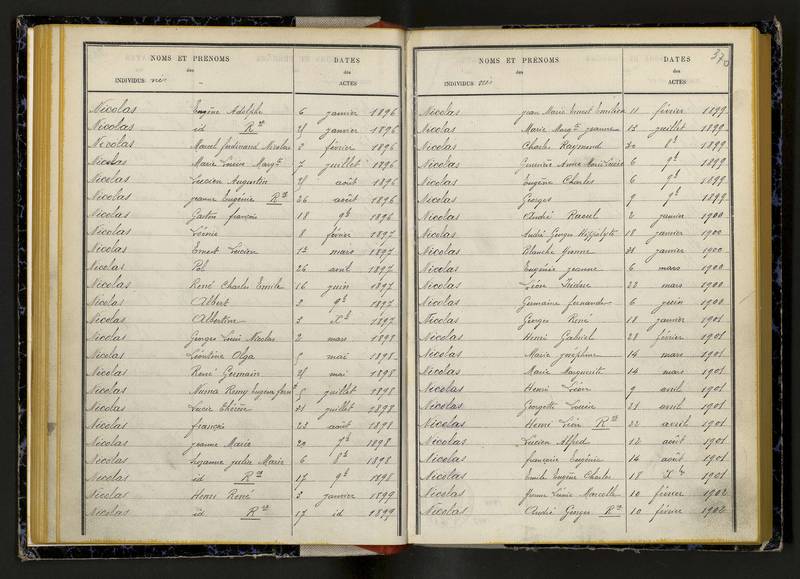 NOMS ET PRÉNOMS
des
INDIVIDUS nés
DATES
des
ACTES
Nicolas Eugène Adolphe 6 janvier 1896
Nicolas id Ron janvier 1896
Nicolas Marcel Ferdinand Nicolas 2 février 1896
Nicolas Marie Louise Margte 7 juillet 1896
Nicolas Lucien Augustin août 1896
Nicolas Jeanne Eugénie Ron 26 août 1896
Nicolas Gaston François 18 9b 1896
Nicolas Léonie 8 février 1897
Nicolas Ernest Lucien 12 mars 1897
Nicolas Pol 26 avril 1897
Nicolas René Charles Emile 16 juin 1897
Nicolas Albert 2 9b 1897
Nicolas Albertine 3 Xb 1897
Nicolas George Louis Nicolas 2 mars 1898
Nicolas Léontine Olga 5 mai 1898
Nicolas René Germain mai 1898
Nicolas Numa Remy Eugène 5 juillet 1898
Nicolas Lucie 31 juillet 1898
Nicolas François 23 août 1898
Nicolas Jeanne Marie 20 7b 1898
Nicolas Suzanne Julia Marie 6 8b 1898
Nicolas id Ron 17 9b 1898
Nicolas Henri René 3 janvier 1899
Nicolas id Ron 17 id 1899
370
NOMS ET PRÉNOMS
des
INDIVIDUS nés
DATES
des
ACTES
Nicolas Jean Marie Ernest Emilien 11 février 1899
Nicolas Marie Margte Jeanne 13 juillet 1899
Nicolas Charles Raymond 30 8b 1899
Nicolas Anne Marie Lucie 6 9b 1899
Nicolas Eugène Charles 6 9b 1899
Nicolas Georges 9 9b 1899
Nicolas André Raoul 2 janvier 1900
Nicolas André Georges Hippolyte 18 janvier 1900
Nicolas Blanche Yvonne 31 janvier 1900
Nicolas Eugénie Jeanne 6 mars 1900
Nicolas Léon Isidore 22 mars 1900
Nicolas Germaine Fernande 6 juin 1900
Nicolas Georges René 18 janvier 1901
Nicolas Henri Gabriel 28 février 1901
Nicolas Marie Joséphine 14 mars 1901
Nicolas Marie Marguerite 14 mars 1901
Nicolas Henri Léon 9 avril 1901
Nicolas Georgette Lucie 21 avril 1901
Nicolas Henri Léon Ron 22 avril 1901
Nicolas Lucien Alfred 12 août 1901
Nicolas Françoise Eugénie 14 août 1901
Nicolas Emile Eugène Charles 18 Xb 1901
Nicolas Louise Marcelle 10 février 1902
Nicolas André Georges Ron 10 février 1902